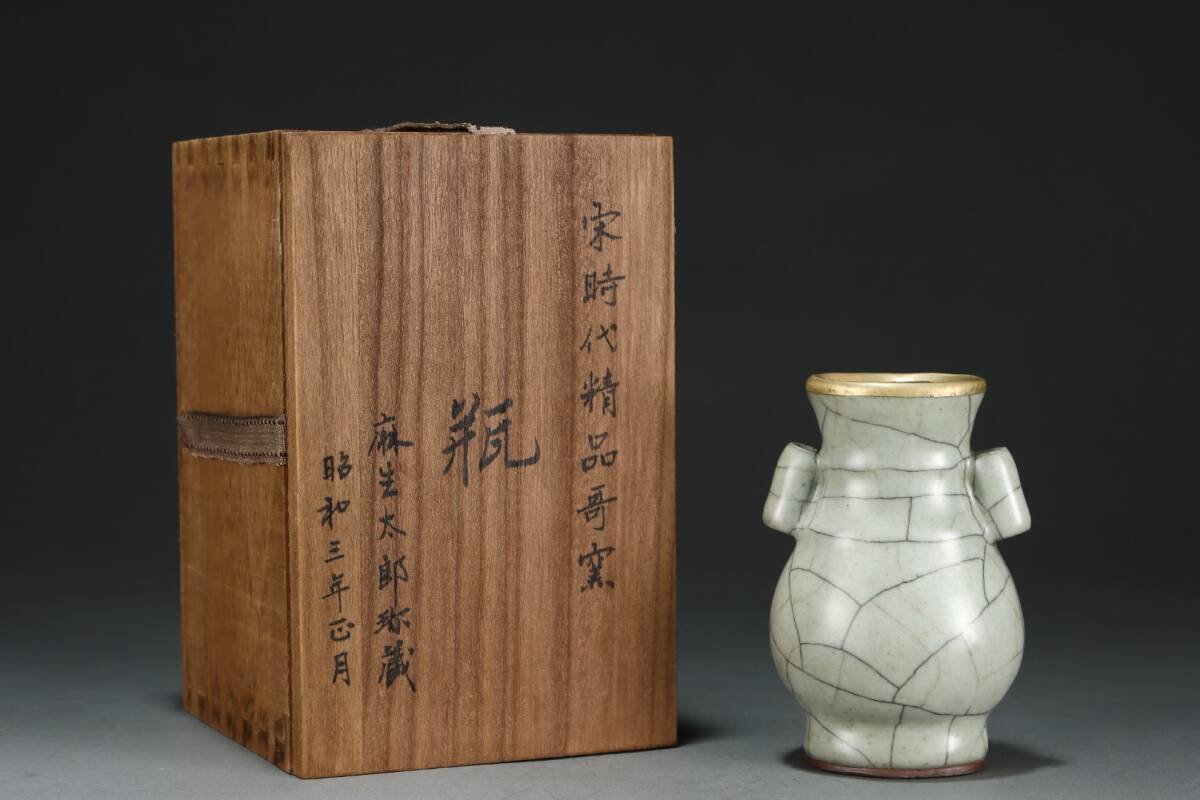 宋時代精品哥窯
瓶
麻生太郎珎藏
昭和三年正月